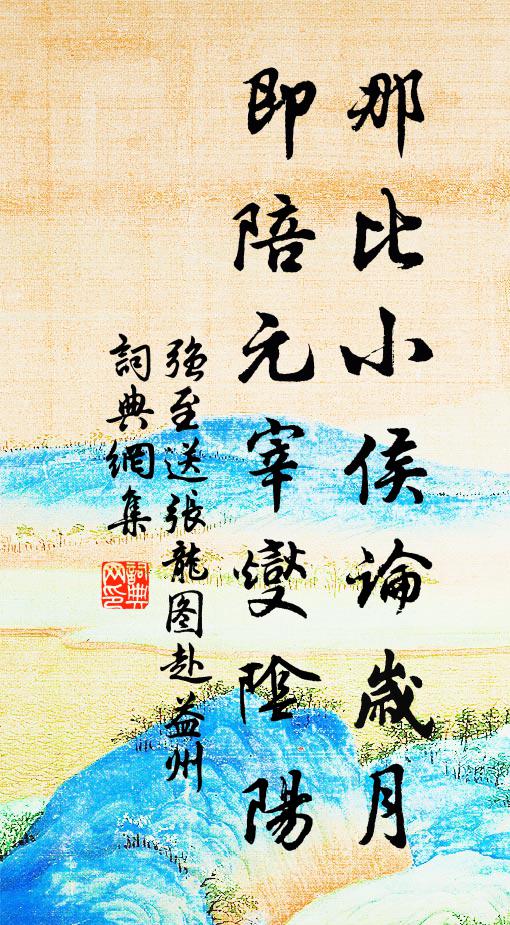 那比小侯論歲月
即陪元宰燮陰陽
強至送張龍图赴益州
詞典網集
詞典网印